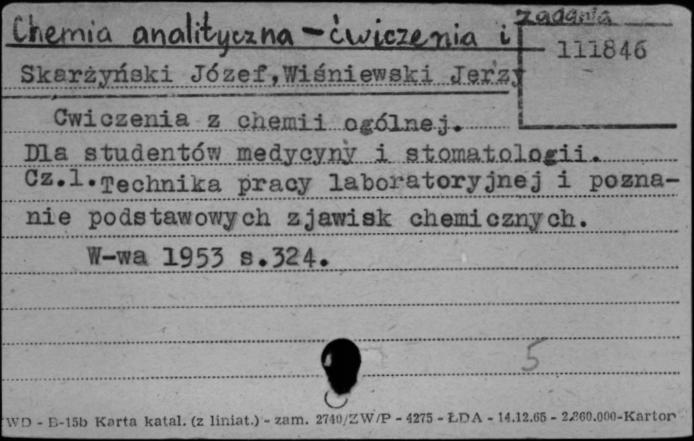 Chemia analityczna - ćwiczenia i zadania
111846
Skarżyński Józef,Wiśniewski Jerzy
Cwiczenia z chemii ogólnej.
Dla studentów medycyny i stomatologii.
Cz.1.Technika pracy laboratoryjnej i pozna-
nie podstawowych zjawisk chemicznych.
W-wa 1953 s.324.
5
WD - B-15b Karta katal. (z liniat.) - zam. 2740/ZW/P - 4275 - ŁDA - 14.12.65 - 2.860.000-Karton